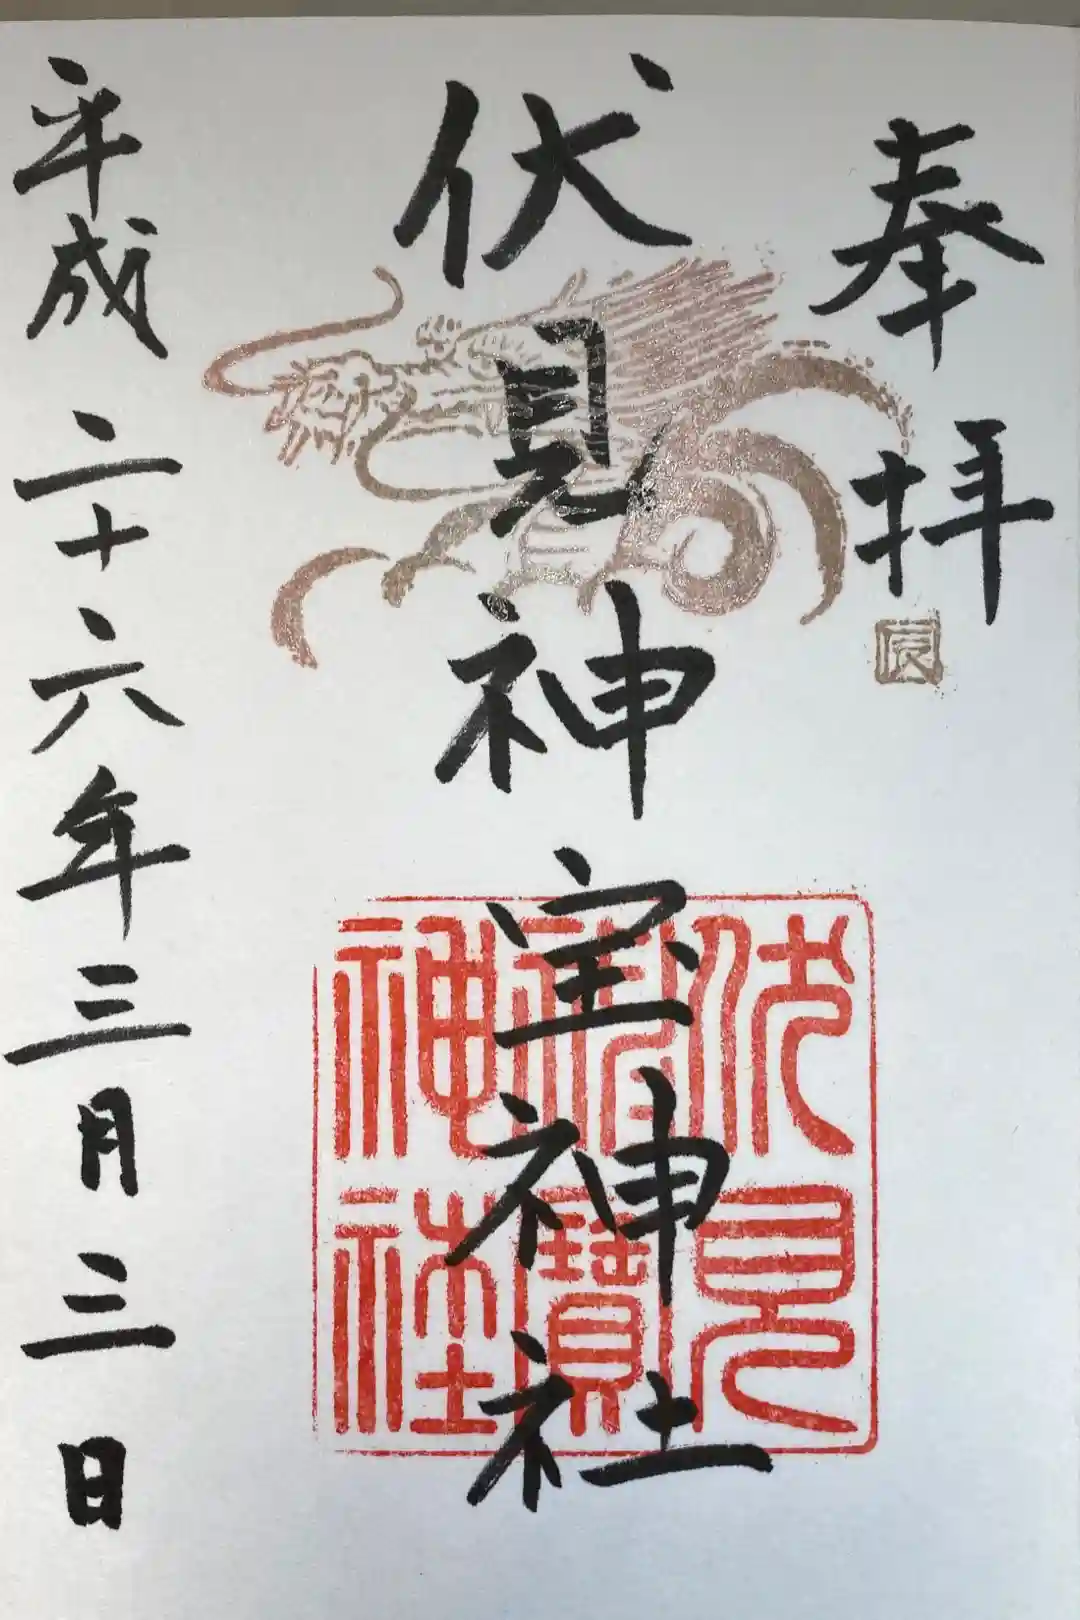 奉拝
辰
伏見神宝神社
伏見
神寶
神社
平成二十六年三月三日